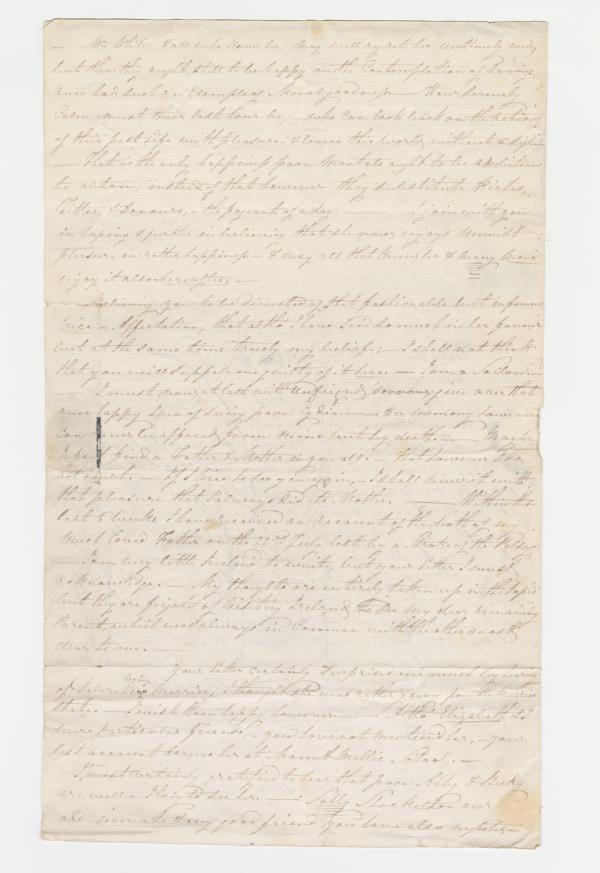 — Mrs White, & all who knew her, may well regret her untimely end,
but then they ought still to be happy in the Contemplation of having
once had such an Example of Moral goodness — How Serenely
Calm must their last hour be, who can look back on the actions
of their past Life with pleasure & leave this world without a sigh —
— That is the only happiness poor Mortals ought to be ambitious
to retain, instead of that however they substitute Riches,
Titles, & Honours, — the pageant of a day. — I join with you
in hoping & further in believing that she now enjoys
pleasure, or rather happiness — & may all that knew her & many more
enjoy it also hereafter, —
— Believing you to be divested of that fashionable but
vice — Affectation, that altho' I have said so much in her favour
but at the same time truely my beliefs; — I shall not think
that you will suppose me guilty of it here. — I am a Sailor. —
— I must now at last with unfeigned sorrow give over that
once happy Idea of Seeing poor Lydia — Her memory however
can never be effaced from mine but by death. —
find a Father & Mother in you all. — that however I do
not doubt. — If I live to see you again, I shall
that pleasure that I always did to — Within the
last 6 weeks, I have received an account of the death of my
much loved Father on the 22nd July last by a
— I am very little Inclined to write, but your letter I must
acknowledge. — My thoughts are entirely taken up in the
of visiting Ireland to see my dear remaining
Parent, which was always in Common with the other most
dear to me. —
Your letter certainly surprised me much by hearing
of being Married; I thought she was rather young for the Married
State. — I wish them happy however — Altho' Elizabeth & I
were particular friends, you have not mentioned her, — your
last account leaves her at Mount Mellic School. —
I'm most certainly gratified to hear that poor Abby & Becky
are well — I long to see her. — Sally Stockelson our
old inmate & my good friend you have also neglected —